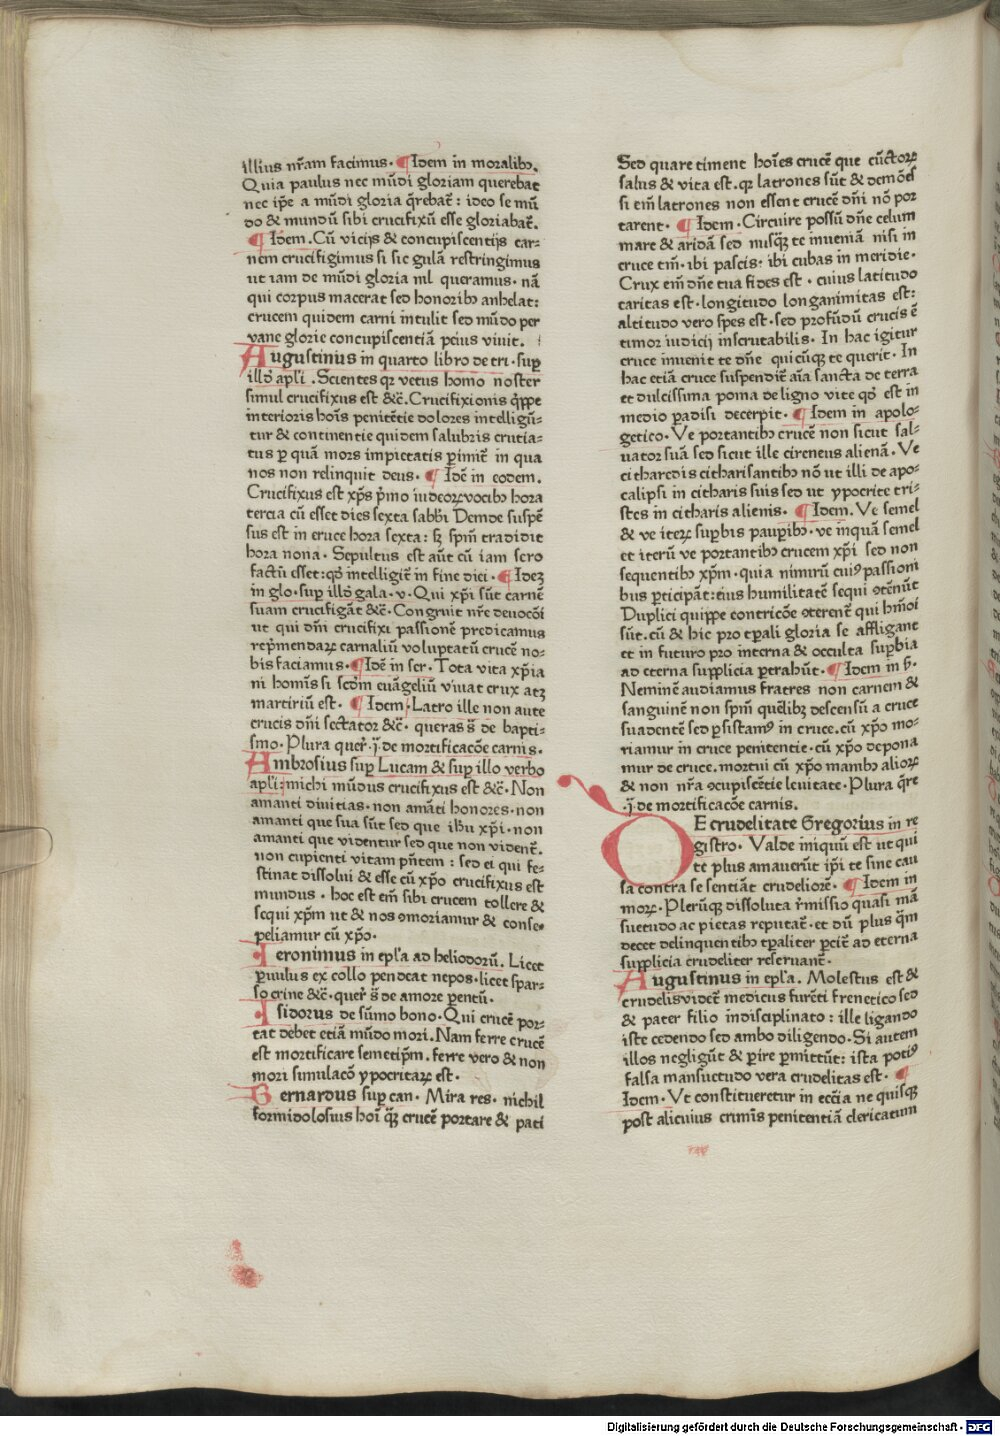 illius nr̃am facimus. ¶ Idem in moralibꝫ.
Quia paulus nec mũdi gloriam querebat
nec ip̃e a mũdi gloria q̃rebat᷑ : ideo se mũ
do & mundũ sibi crucifixũ esse gloriabat᷑.
¶ Idem. Cũ vicijs & concupiscentijs car=
nem crucifigimus si sic gulã restringimus
ut iam de mũdi gloria nil queramus. nã
qui corpus macerat sed honoribꝫ anhelat:
crucem quidem carni intulit sed mũdo per
vane glorie concupiscentiã peius viuit.
Augustinus in quarto libro de tri. suꝑ
illd̃ apl̃i. Scientes qꝛ vetus homo noster
simul crucifixus est &c̃. Crucifixionis q̃ppe
interioris hoĩs penitẽtie dolores intelligũ-
tur & continentie quidem salubris crutia=
tus ꝑ quã mors impietatis ꝑimit᷑ in qua
nos non relinquit deus. ¶ Idẽ in eodem.
Crucifixus est xp̃s p̃mo iudeoꝝ vocibꝫ hora
tercia cũ esset dies sexta sabb̃i Deinde suspẽ
sus est in cruce hora sexta: sꝫ sp̃m tradidit
hora nona. Sepultus est aut̃ cũ iam sero
factũ esset: qd̃ intelligit᷑ in fine dici. ¶ Ideꝫ
in glo. suꝑ illd̃ gala. v. Qui xp̃i sũt carnẽ
suam crucifigãt &c̃. Congruit nr̃e deuocõi
ut qui dñi crucifixi passionẽ predicamus
rep̃mendaꝝ carnaliũ voluptatũ crucẽ no-
bis faciamus. ¶ Idẽ in ser. Tota vita xp̃ia
ni hominis si scd̃m euãgeliũ viuat crux atꝫ
martiriũ est. ¶ Idem. Latro ille non ante
crucis dñi sectator &c̃. queras s̃ de bapti=
smo. Plura quer̃ .j̃. de mortificacõe carnis.
Ambrosius suꝑ Lucam & suꝑ illo verbo
apl̃i: michi mũdus crucifixus est &c̃. Non
amanti diuitias. non amãti honores. non
amanti que sua sũt sed que ihũ xp̃i. non
amanti que videntur sed que non vident᷑.
non cupienti vitam p̃ñtem : sed ei qui fe-
stinat dissolui & esse cũ xp̃o crucifixus est
mundus. hoc est em̃ sibi crucem tollere &
sequi xp̃m ut & nos ꝯmoriamur & conse-
peliamur cũ xp̃o.
Ieronimus in epl̃a ad heliodorũ. Licet
ꝑuulus ex collo pendeat nepos. licet spar-
so crine &c̃. quer̃ s̃ de amore parentũ.
Isidorus de sũmo bono. Qui crucẽ por-
tat debet etiã mũdo mori. Nam ferre crucẽ
est mortificare semetip̃m. ferre vero & non
mori simulacõ ypocritaꝝ est.
Bernardus suꝑ can. Mira res. nichil
formidolosius hoĩ q̃ꝫ crucẽ portare & pati
Sed quare timent hoĩes crucẽ que cũctoꝝ
salus & vita est. qꝛ latrones sũt & demões
si em̃ latrones non essent crucẽ dñi nõ por
tarent. ¶ Idem. Circuire possũ dñe celum
mare & aridã sed nusq̃ꝫ te inueniã nisi in
cruce tm̃. ibi pascis: ibi cubas in meridie.
Crux em̃ dñe tua fides est. cuius latitudo
caritas est. longitudo longanimitas est:
altitudo vero spes est. sed profũdũ crucis ẽ
timor iudicij inscrutabilis. In hac igitur
cruce inuenit te dñe quicũqꝫ te querit. In
hac etiã cruce suspendit᷑ aĩa sancta de terra
et dulcissima poma de ligno vite qd̃ est in
medio ꝑadisi decerpit. ¶ Idem in apolo-
getico. Ve portantibꝫ crucẽ non sicut sal-
uator suã sed sicut ille cireneus alienã. Ve
citharedis citharisantibꝫ nõ ut illi de apo-
calipsi in citharis suis sed ut ypocrite tri-
stes in citharis alienis. ¶ Idem. Ve semel
& ve iteꝝ suꝑbis pauꝑibꝫ. ve inquã semel
et iterũ ve portantibꝫ crucem xp̃i sed non
sequentibꝫ xp̃m. quia nimirũ cuiꝰ passioni
bus ꝑticipãt: eius humilitatẽ sequi ꝯtẽnũt
Duplici quippe contricõe ꝯterent᷑ qui hm̃oi
sũt. cũ & hic pro tꝑali gloria se affligant
et in futuro pro interna & occulta suꝑbia
ad eterna supplicia ꝑtrahũt᷑. ¶ Idem in ẜ.
Neminẽ audiamus fratres non carnem &
sanguinẽ non sp̃m quẽlibꝫ descensũ a cruce
suadentẽ sed ꝑsistamꝰ in cruce. cũ xp̃o mo-
riamur in cruce penitentie. cũ xp̃o depona
mur de cruce. mortui cũ xp̃o manibꝫ alioꝝ
& non nr̃a ꝯcupiscẽtie leuitate. Plura q̃re
.j̃. de mortificacõe carnis.
DE crudelitate Gregorius in re
gistro. Valde iniquũ est ut qui
te plus amauerũt ip̃i te sine cau
sa contra se sentiãt crudeliorẽ. ¶ Idem in
moꝝ. Plerũqꝫ dissoluta r̃missio quasi mã
suetudo ac pietas reputat᷑. et dũ plus q̃m
decet delinquentibꝫ tꝑaliter ꝑcit᷑ ad eterna
supplicia crudeliter reseruant᷑.
Augustinus in epl̃a. Molestus est &
crudelis videt᷑ medicus furẽti frenetico sed
& pater filio indisciplinato : ille ligando
iste cedendo sed ambo diligendo. Si autem
illos negligũt & ꝑire ꝑmittũt: ista potiꝰ
falsa mansuetudo vera crudelitas est. ¶
Idem. Ut constitueretur in eccĩa ne quisqꝫ
post alicuius criminis penitentiã clericatum
Digitalisierung gefördert durch die Deutsche Forschungsgemeinschaft - DFG